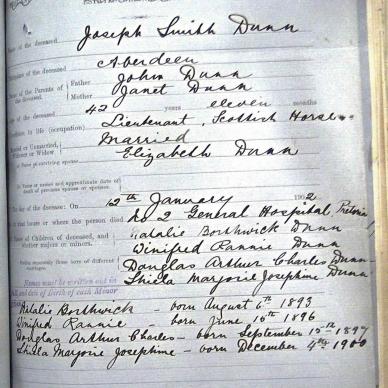 Name of the deceased Joseph Smith Dunn
Birthplace of the deceased Aberdeen
Names of the Parents of the deceased. Father John Dunn
Mother Janet Dunn
42 years eleven months
Condition in life (occupation) Lieutenant, Scottish Horse
Married or Unmarried, Widower or Widow Married
Name of surviving spouse Elizabeth Dunn
Name or names and approximate date of death of previous spouse or spouses.
The day of the decease: On 12th January 1902
At what house or where the person died No 2 General Hospital, Pretoria
Names of Children of deceased, and whether majors or minors. Natalie Borthwick Dunn
Winifred Rannie Dunn
Douglas Arthur Charles Dunn
Sheila Marjorie Josephine Dunn
Names must be written in
Date of Birth of each Minor
Natalie Borthwick - born August 6th 1893
Winifred Rannie - born June 10th 1896
Douglas Arthur Charles - born September 15th 1897
Sheila Marjorie Josephine - born December 4th 1900